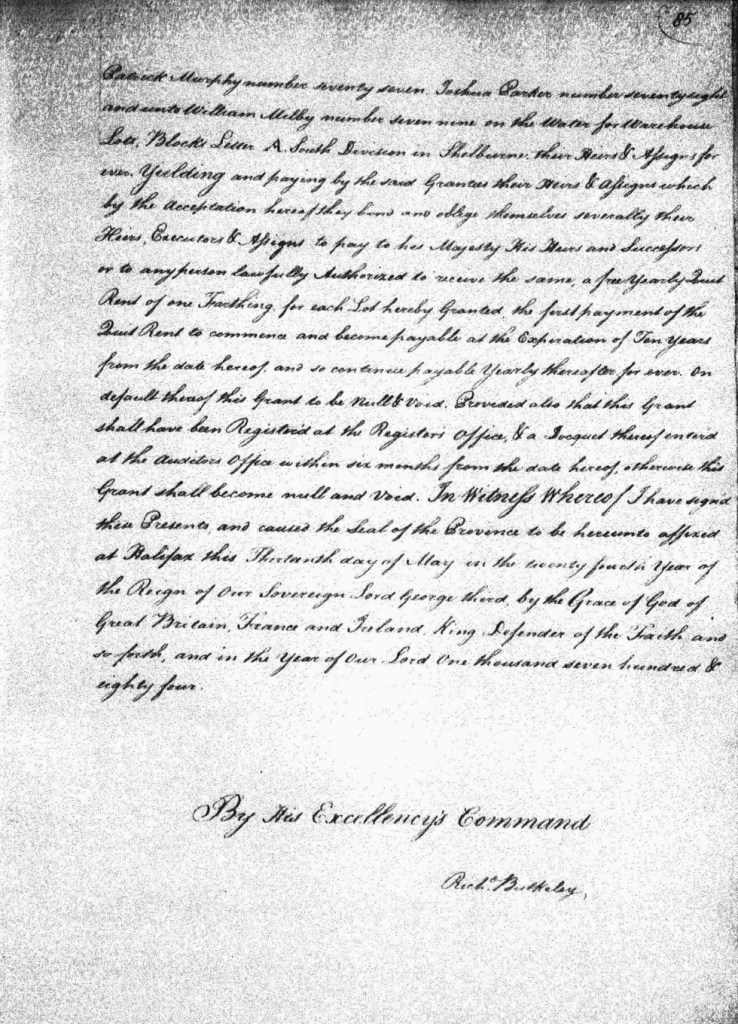 85
Patrick Murphy number seventy seven. Joshua Parker number seventy eight
and unto William Milby number seven nine on the Water for Warehouse
Lots, Block Letter A South Division in Shelburne, their Heirs & Assigns for
ever. Yeilding and paying by the said Grantees their Heirs & Assigns which
by the Acceptation hereof they bind and oblige themselves severally their
Heirs, Executors & Assigns to pay to his Majesty His Heirs and Successors
or to any person lawfully Authorized to receive the same, a free Yearly Quit
Rent of one Farthing, for each Lot hereby Granted, the first payment of the
Quit Rent to commence and become payable at the Experation of Ten Years
from the date hereof, and so continue payable Yearly thereafter for ever. On
default thereof this Grant to be Null & Void. Provided also that this Grant
shall have been Registerd at the Registers Office, & a Docquet thereof enterd
at the Auditors Office within six months from the date hereof, otherwise this
Grant shall become null and Void. In Witness Whereof I have signd
these Presents, and caused the Seal of the Province to be hereunto affixed
at Halifax this Thirteenth day of May in the twenty fourth Year of
the Reign of Our Sovereign Lord George third, by the Grace of God of
Great Britain, France and Ireland, King Defender of the Faith and
so forth, and in the Year of Our Lord One thousand seven hundred &
eighty four.
By His Excellency's Command
Richd. Bulkeley,